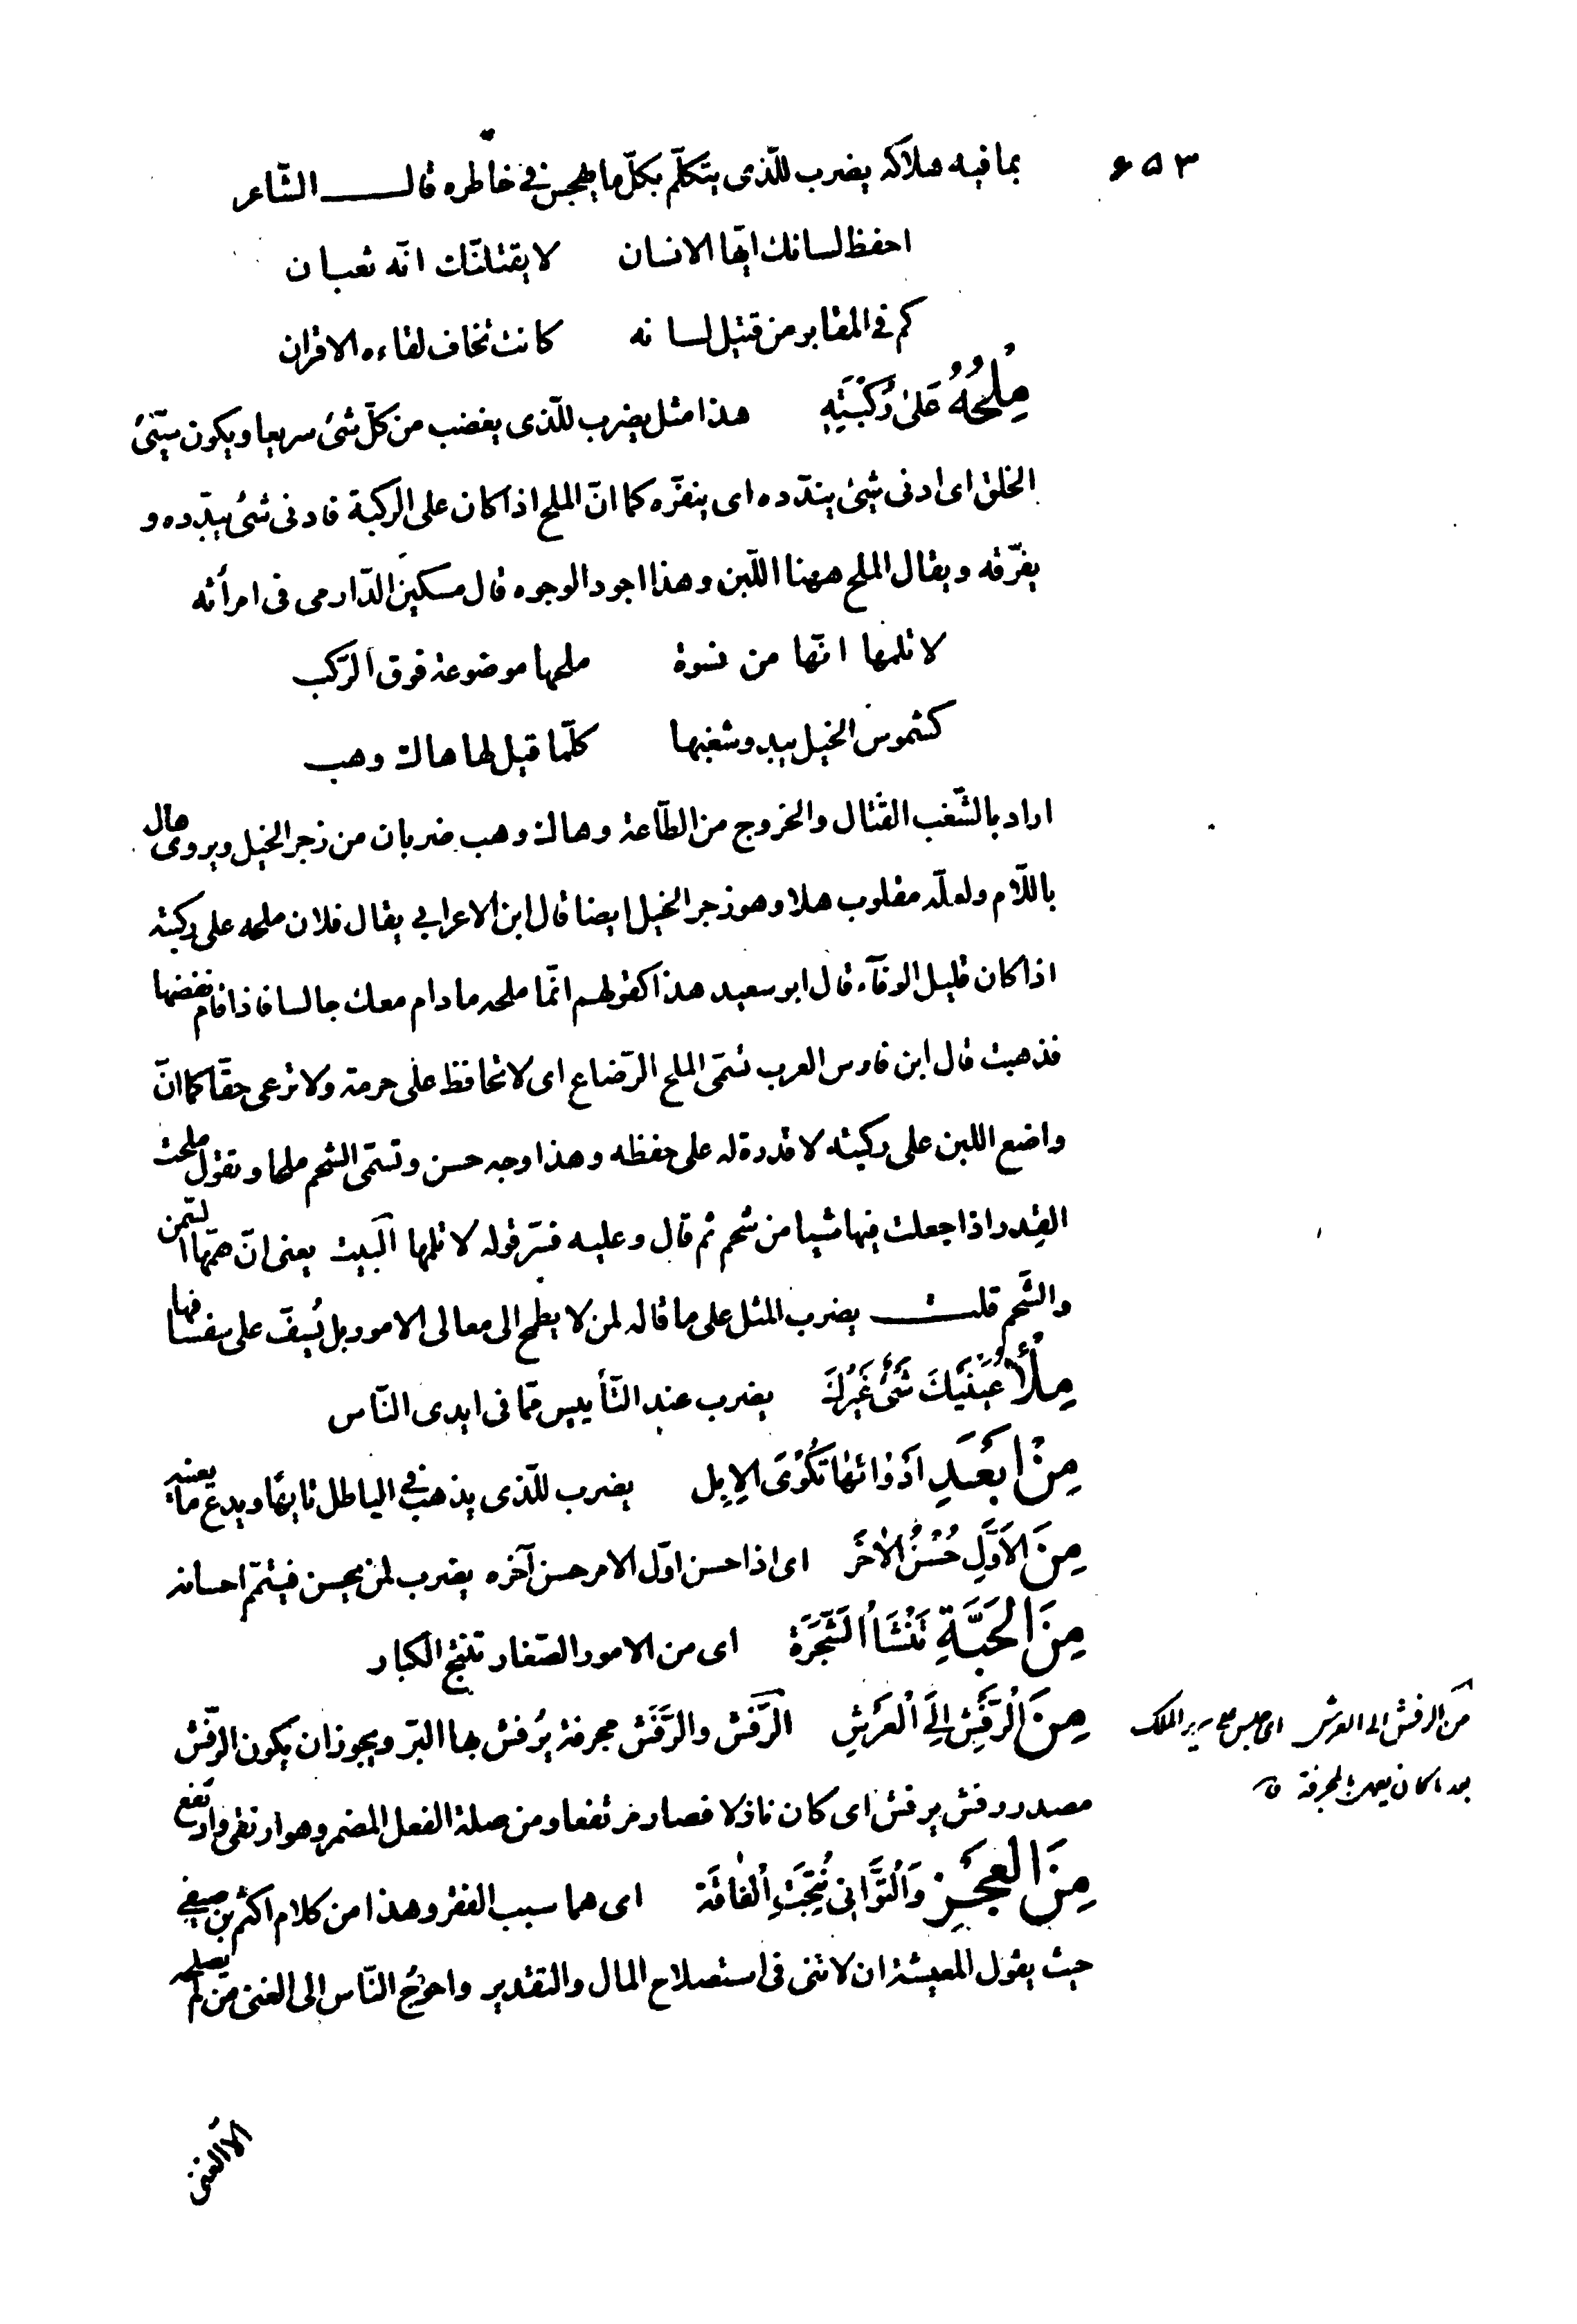 ۶۵۳
بما فيه هلاكه يضرب للّذى يتكلّم بكلّ ما يهجس فى خاطره قال الشّاعر
احفظ لسانك ايّها الانسان لا يقتلنّك انّه ثعبان
كم فى المقابر من قتيل لسانه كانت تخاف لقاءه الاقران
مِلْحُهُ عَلىٰ رُكْبَتَيْهِ هذا مثل يضرب للّذى يغضب من كلّ شئ سريعا ويكون سيّئ
الخلق اى ادنى شئ يبدّده اى ينفّره كما انّ الملح اذا كان على الركبة فادنى شئ يبدّده و
يفرّقه ويقال الملح ههنا اللّبن وهذا اجود الوجوه قال مسكين الدّارمى فى امرأته
لا تلمها انّها من نسوة ملحها موضوعة فوق الرّكب
كشموس الخيل يبدو شغبها كلّما قيل لها هال وهب
اراد بالشّغب القتال والخروج من الطّاعة وهال وهب ضربان من زجر الخيل ويروى هال
باللّام ولعلّه مقلوب هلا وهو زجر الخيل ايضا قال ابن الاعرابى يقال فلان ملحه على ركبته
اذا كان قليل الوفآء قال ابو سعيد هذا كقولهم انّما ملحه مادام معك جالسا فاذا قام نفضها
فذهبت قال ابن فارس العرب تسمّى الملح الرّضاع اى لا تحافظ على حرمة ولا ترعى حقّا كما انّ
واضع اللبن على ركبته لا قدرة له على حفظه وهذا وجه حسن وتسمّى الشحم ملحا وتقول ملحت
القدر اذا جعلت فيها شيا من شحم ثم قال وعليه فسّر قوله لا تلمها البيت يعنى انّ همّها السّمن
والشّحم قلت يضرب المثل على ما قاله لمن لا يطمح الى معالى الامور بل يُسِفّ على سفسافها
مِلْأُ عَيْنَيْكَ شَئٌ غَيْرُكَ يضرب عند التّأييس ممّا فى ايدى النّاس
مِنْ اَبْعَدِ اَدْوَائهَا تُكْوَى الإِبِل يضرب للّذى يذهب فى الباطل تايها ويدع ما يعنيه
مِنَ الاَوَّلِ حُسْنُ الاٰخَر اى اذا حسن اوّل الامر حسن آخره يضرب لمن يحسن فيتمّم احسانه
مِنَ الحَبَّةِ تَنْشَأُ الشَّجَرَة اى من الامور الصّغار تنتج الكبار
مِنَ الرَّفْشِ اِلَى الْعَرْشِ الرَّفش والرَّفَش مجرفة يُرفش بها البرّ ويجوز ان يكون الرّفش
مصدر رفش يرفش اى كان نازلا فصار مرتفعا ومن صلة الفعل المضمر وهو ارتقى وارتفع
مِنَ العَجْزِ وَالتَّوَانى نُتِجَتِ الْفَاقَة اى هما سبب الفقر وهذا من كلام اكثم بن صيفى
حيث يقول المعيشة ان لا تنى فى استصلاح المال والتقدير واحوج النّاس الى الغنى من لم يصلحه
من الرفش الى العرش اى جلس على سرير الملك
بعد ما كان يعمل بالمجرفة
الّا الغنى